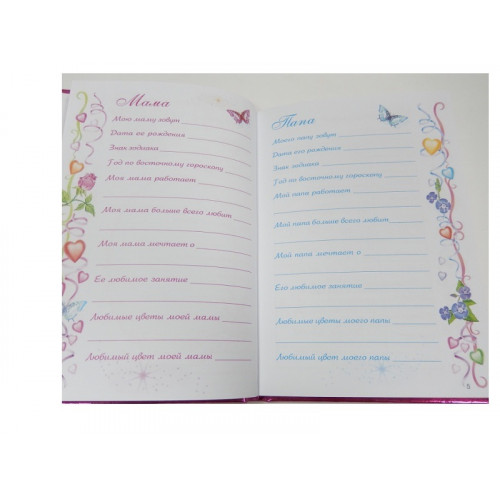 Мама
Мою маму зовут
Дата ее рождения
Знак зодиака
Год по восточному гороскопу
Моя мама работает
Моя мама больше всего любит
Моя мама мечтает о
Ее любимое занятие
Любимые цветы моей мамы
Любимый цвет моей мамы
Папа
Моего папу зовут
Дата его рождения
Знак зодиака
Год по восточному гороскопу
Мой папа работает
Мой папа больше всего любит
Мой папа мечтает о
Его любимое занятие
Любимые цветы моего папы
Любимый цвет моего папы
5